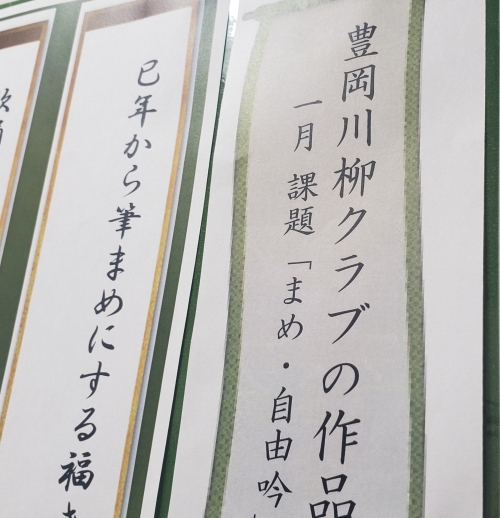 豊岡川柳クラブの作品
一月 課題「まめ・自由吟
巳年から筆まめにする福